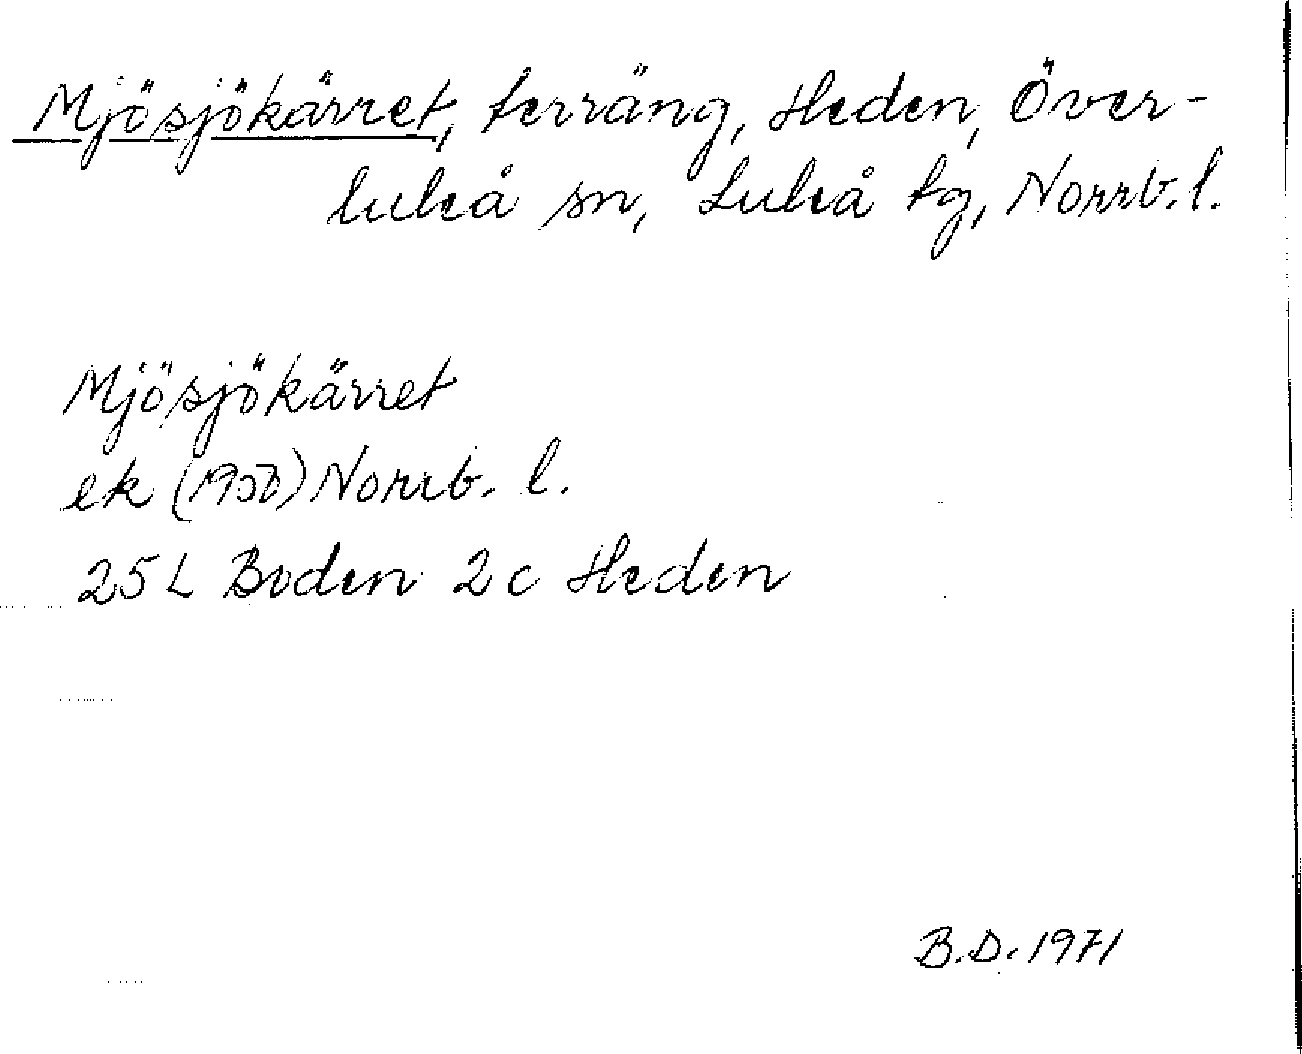 Mjösjökärret, terräng, Heden, Över-
luleå sn, Luleå tg, Norrb. l.
Mjösjökärret
ek Norrb. l.
25 L Boden 2 c Heden
B.D. 1971